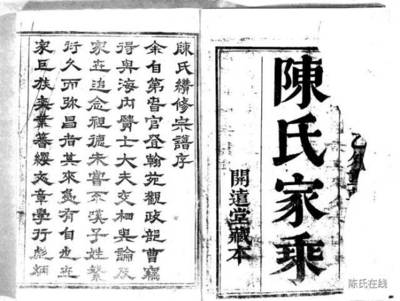 陳氏家乘
開達堂藏本
陳氏續修宗譜序
余自第官登翰苑觀政曹竊
得與海內賢士大夫交相與論及
家世追念祖德未嘗不子姓繁
衍久而弥昌者其來有自也
家巨族簪纓文章學行彪炳
陈氏在线